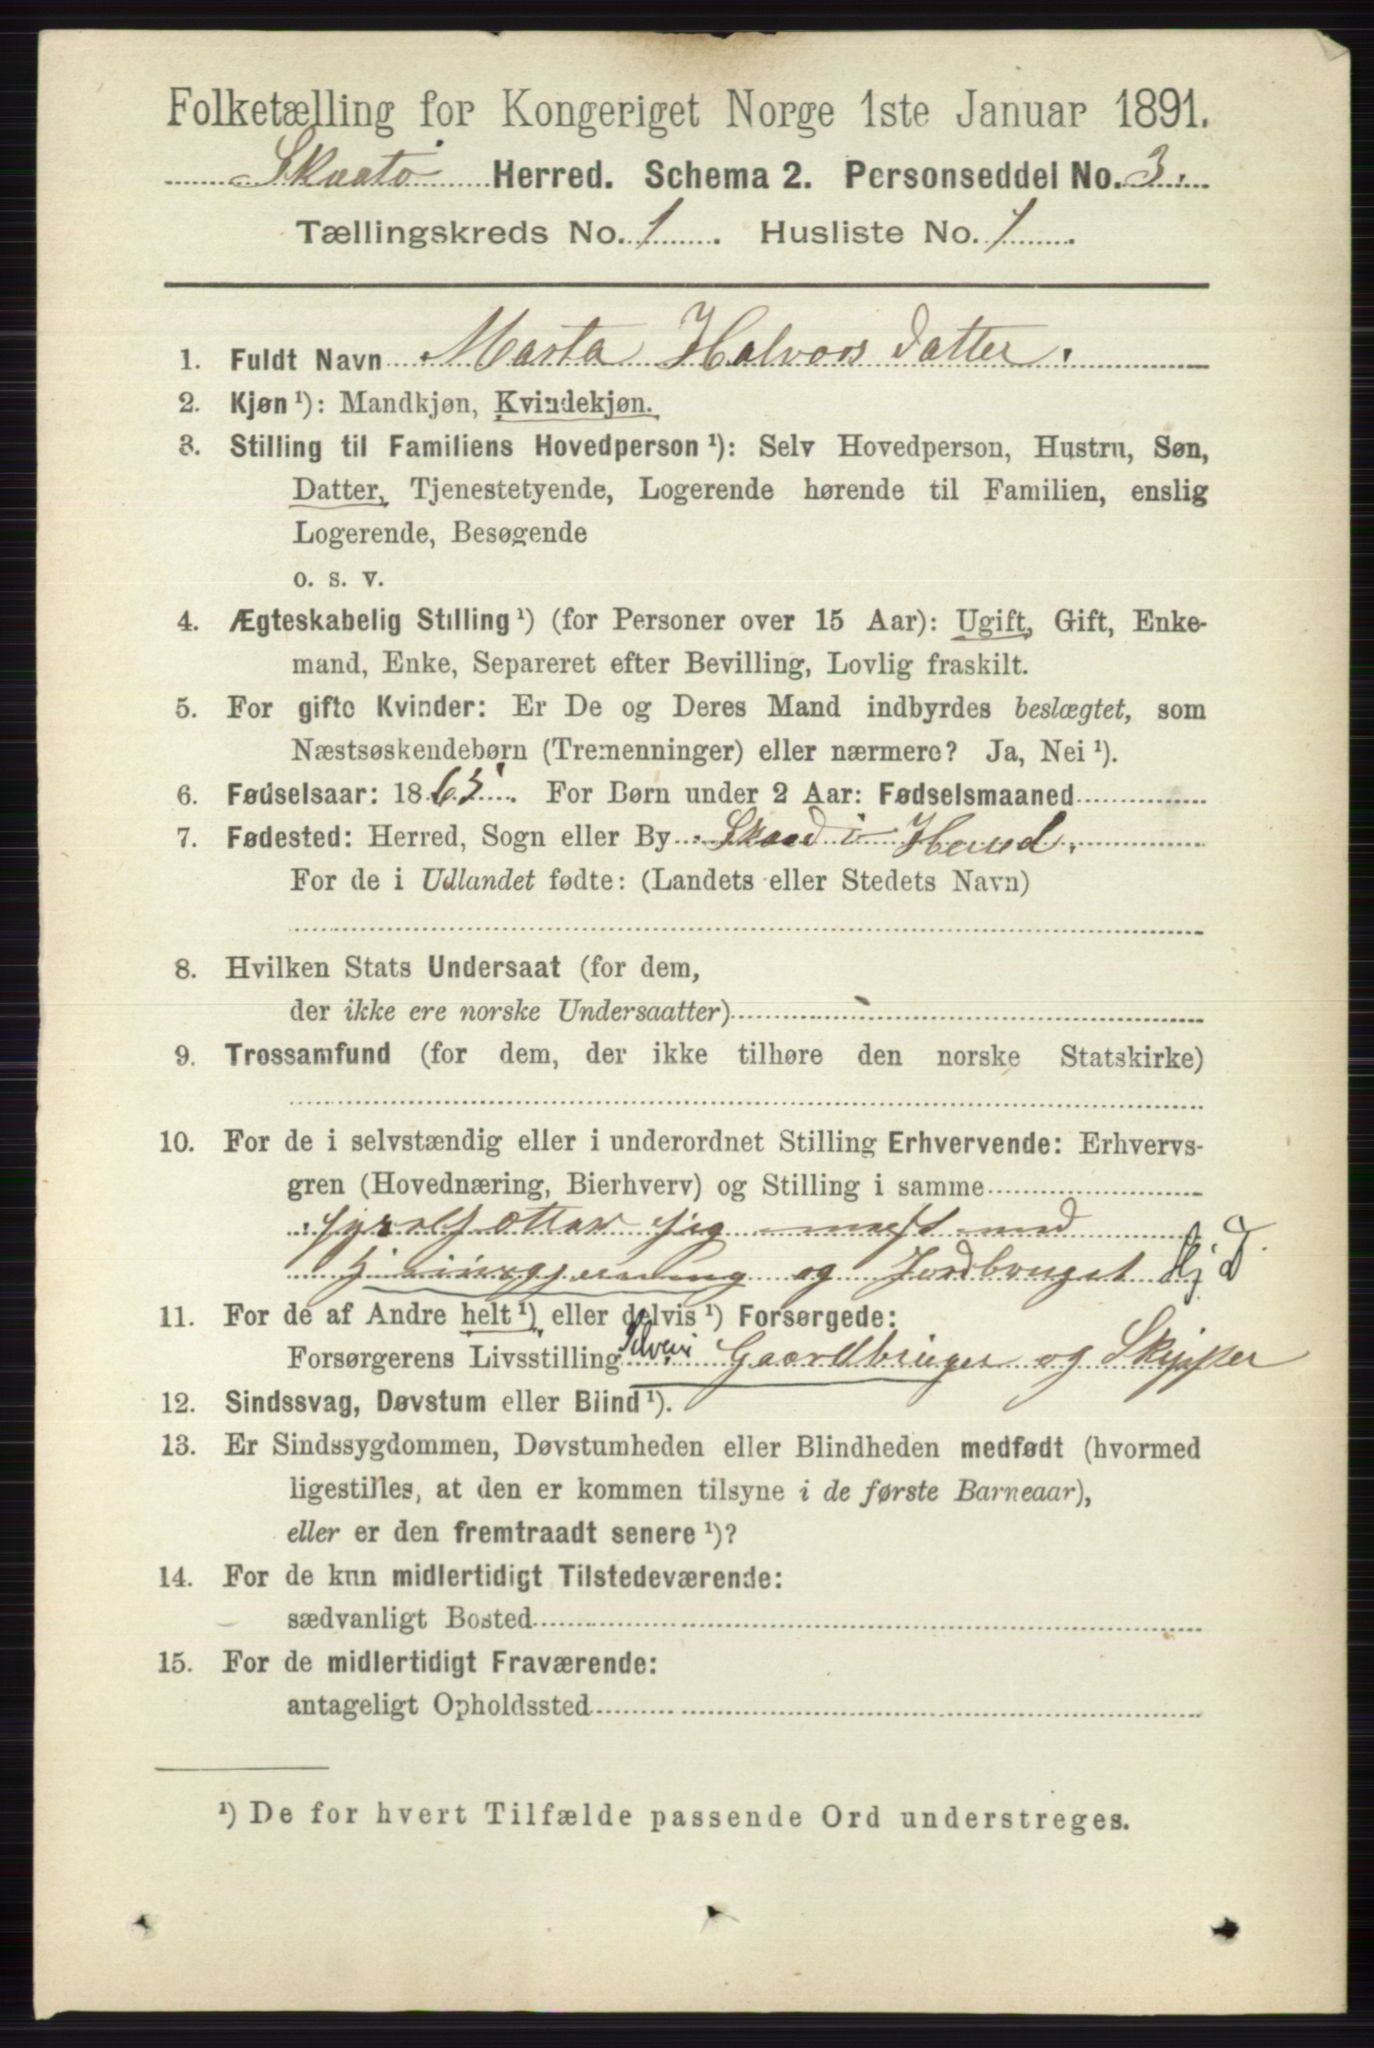 Folketælling for Kongeriget Norge 1ste Januar 1891.
Skaatø Herred. Schema 2. Personseddel No. 3.
Tællingskreds No. 1. Husliste No. 1
1. Fuldt Navn Marta Halvors datter.
2. Kjøn ¹): Mandkjøn, Kvindekjøn.
3. Stilling til Familiens Hovedperson ¹): Selv Hovedperson, Hustru, Søn,
Datter, Tjenestetyende, Logerende hørende til Familien, enslig
Logerende, Besøgende
o. s. v.
4. Ægteskabelig Stilling ¹) (for Personer over 15 Aar): Ugift, Gift, Enke-
mand, Enke, Separeret efter Bevilling, Lovlig fraskilt.
5. For gifte Kvinder: Er De og Deres Mand indbyrdes beslægtet, som
Næstsøskendebørn (Tremenninger) eller nærmere? Ja, Nei ¹).
6. Fødselsaar: 1863. For Børn under 2 Aar: Fødselsmaaned
7. Fødested: Herred, Sogn eller By
For de i Udlandet fødte: (Landets eller Stedets Navn)
8. Hvilken Stats Undersaat (for dem,
der ikke ere norske Undersaatter)
9. Trossamfund (for dem, der ikke tilhøre den norske Statskirke)
10. For de i selvstændig eller i underordnet Stilling Erhvervende: Erhvervs-
gren (Hovednæring, Bierhverv) og Stilling i samme
sysselsætter sig mest med
og Jordbruget
11. For de af Andre helt ¹) eller delvis ¹) Forsørgede:
Forsørgerens Livsstilling Gaardbruger og Skipper
12. Sindssvag, Døvstum eller Blind ¹).
13. Er Sindssygdommen, Døvstumheden eller Blindheden medfødt (hvormed
ligestilles, at den er kommen tilsyne i de første Barneaar),
eller er den fremtraadt senere ¹)?
14. For de kun midlertidigt Tilstedeværende:
sædvanligt Bosted
15. For de midlertidigt Fraværende:
antageligt Opholdssted
¹) De for hvert Tilfælde passende Ord understreges.